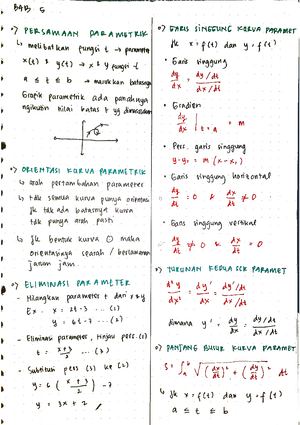 BAB 5
•) PERSAMAAN PARAMETRIK
↳ melibatkan fungsi t → parameter
x(t) & y(t) → x & y fungsi t
a ≤ t ≤ b → masukkan batasnya
Grafik parametrik ada panahnya
ngikutin nilai batas t yg dimasukkan
•) ORIENTASI KURVA PARAMETRIK
↳ arah pertambahan parameter
↳ tdk semua kurva punya orientasi
jk tdk ada batasnya kurva
tdk punya arah pasti
↳ jk bentuk kurva O maka
orientasinya searah / berlawanan
jarum jam.
•) ELIMINASI PARAMETER
- Hilangkan parameter t dari x & y
Ex. x = 2t - 3 ... (1)
y = 6t - 7 ... (2)
- Eliminasi parameter, tinjau pers. (1)
t = x+3 / 2 ... (3)
- Substitusi pers (3) ke (2)
y = 6 ( x+3 / 2 ) - 7
y = 3x + 2
•) GARIS SINGGUNG KURVA PARAMET
jk x = f(t) dan y = f(t)
- Garis singgung
dy/dx = dy/dt / dx/dt
- Gradien
dy/dx | t = a = m
- Pers. garis singgung
y - y₁ = m (x - x₁)
- Garis singgung horizontal
dy/dt = 0 & dx/dt ≠ 0
- Garis singgung vertikal
dy/dt ≠ 0 & dx/dt = 0
•) TURUNAN KEDUA SCR PARAMET
d²y/dx² = dy'/dx = dy'/dt / dx/dt
dimana y' = dy/dx = dy/dt / dx/dt
•) PANJANG BUSUR KURVA PARAMET
S = ∫ₐᵇ √ (dx/dt)² + (dy/dt)² dt
↳ jk x = f(t) dan y = f(t)
a ≤ t ≤ b